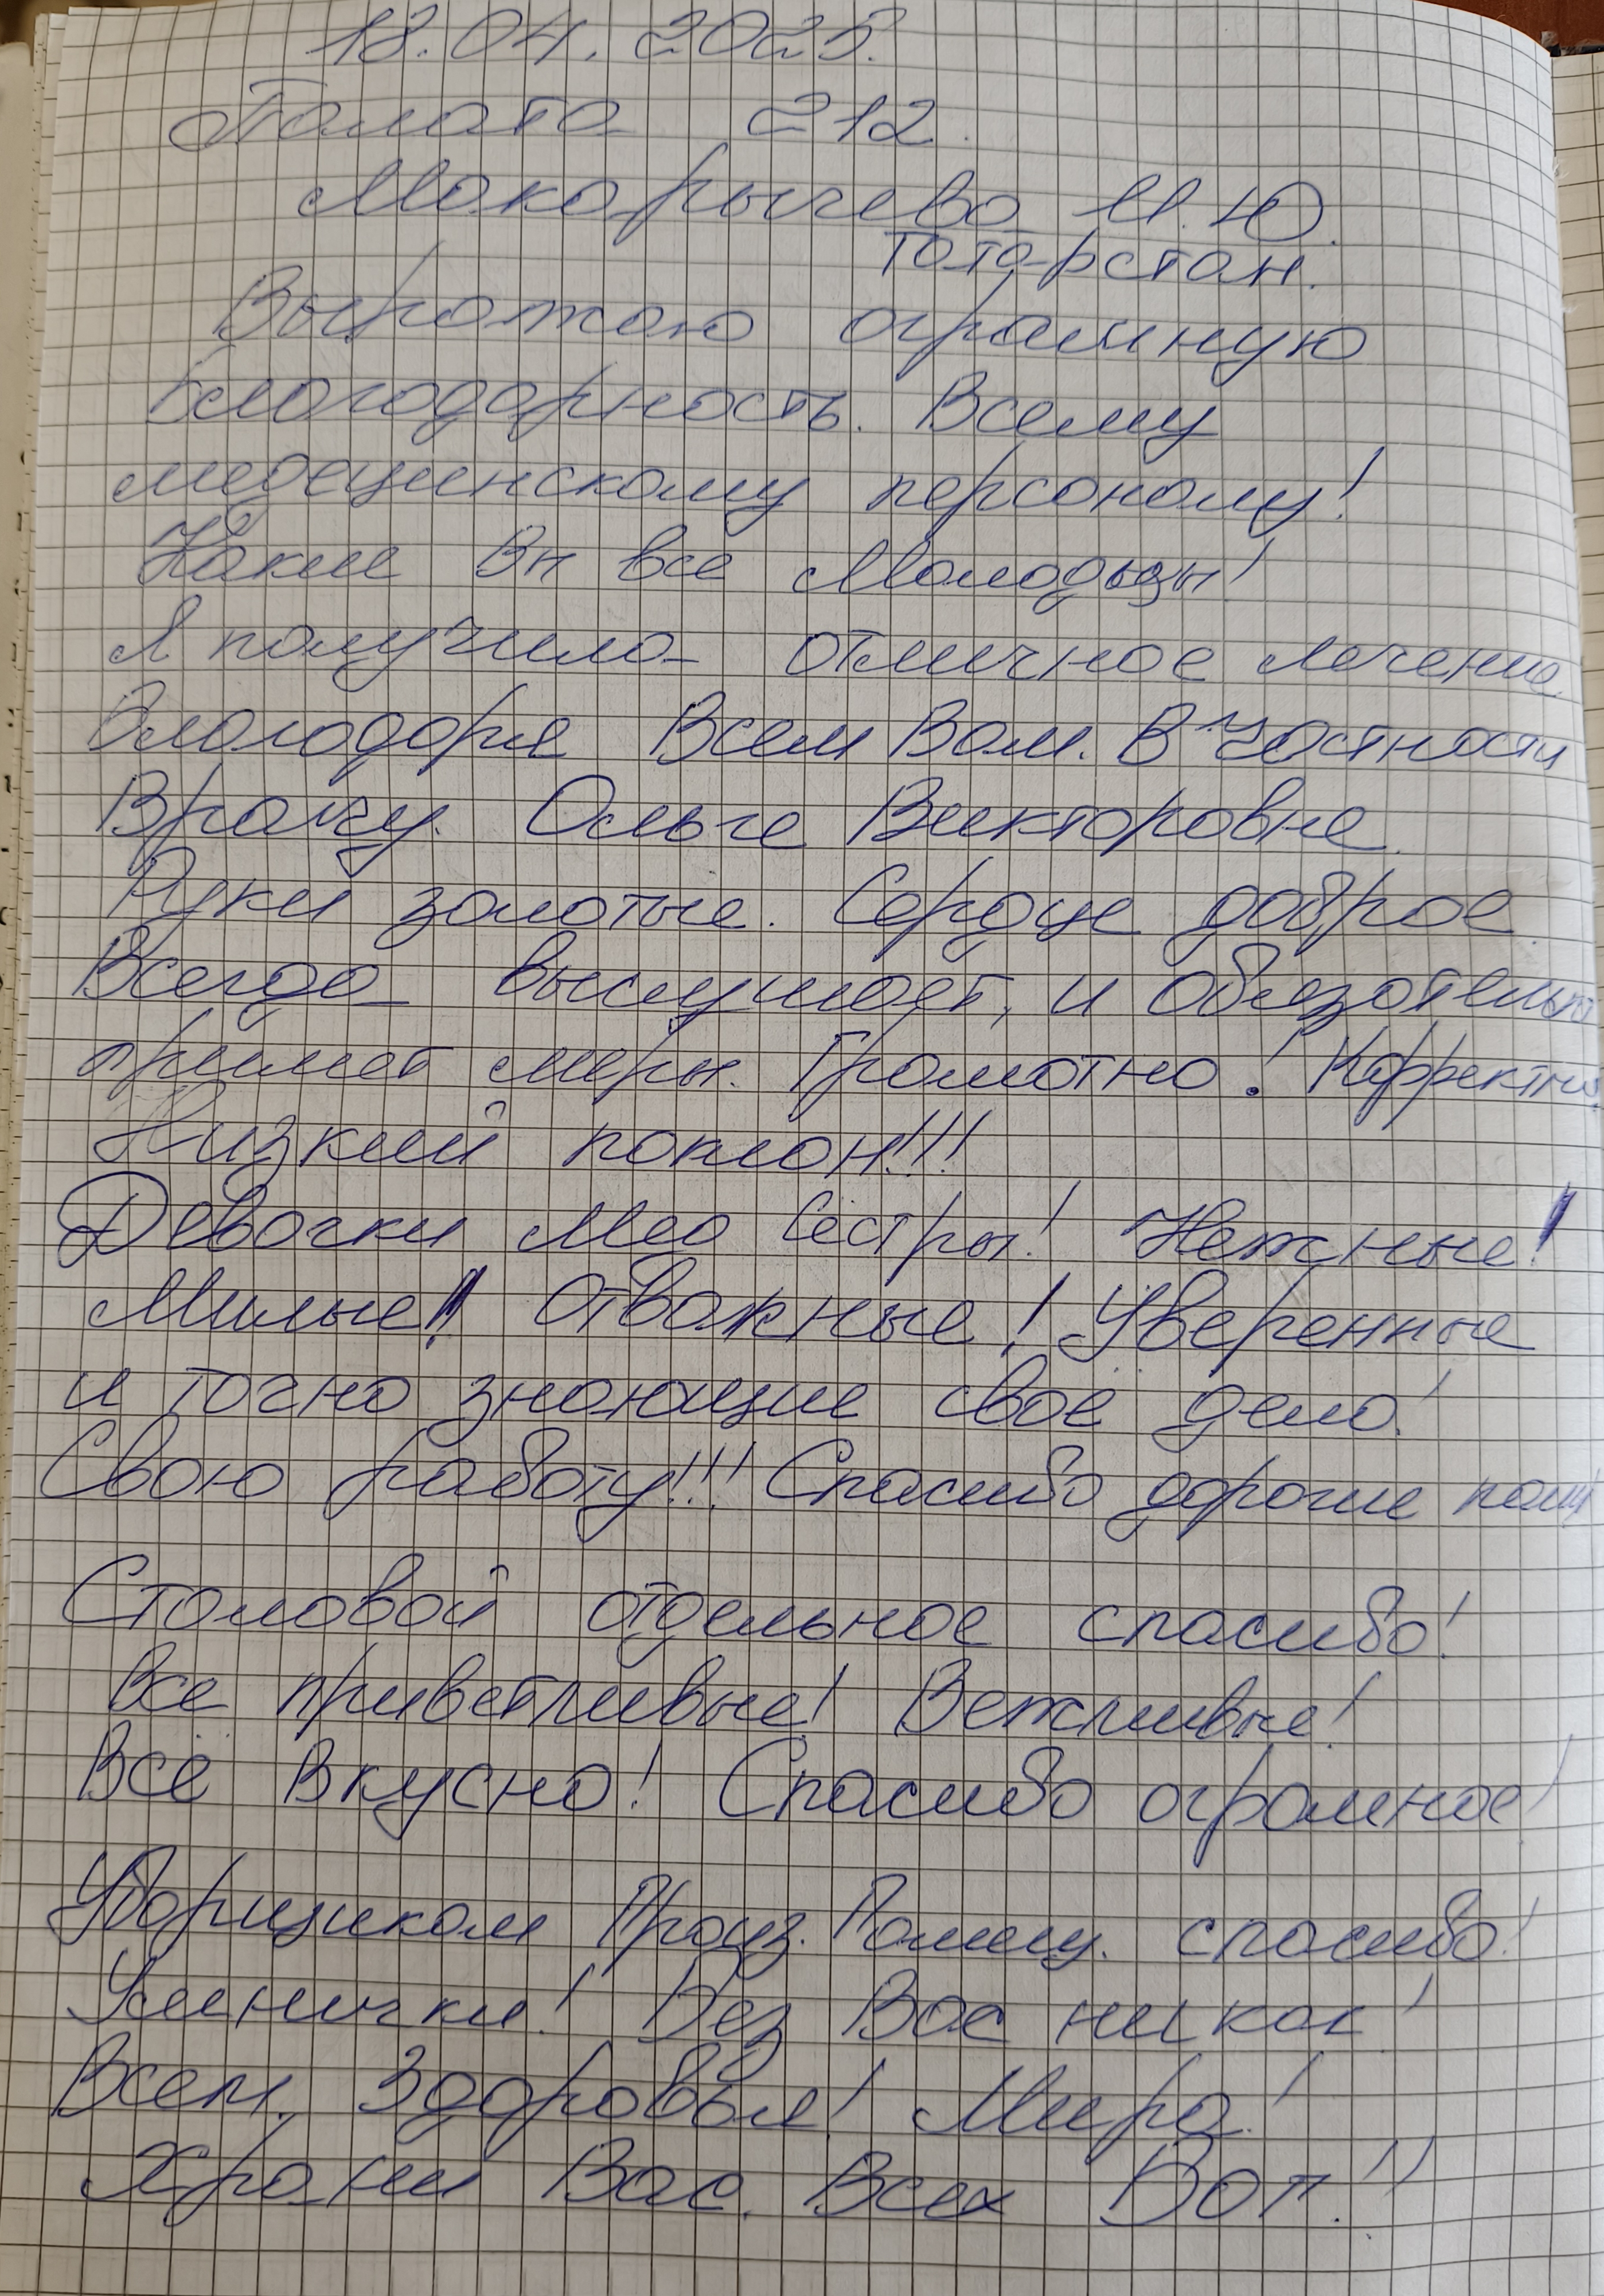 18.04.2025.
Палата 212.
Макарычева И.Ю.
Татарстан.
Выражаю огромную
благодарность. Всему
медецинскому персоналу!
Какие Вы все Молодцы!
Я получила отличное лечение
Благодаря Всем Вам. В частности
Врачу. Ольге Викторовне.
Руки золотые. Сердце доброе.
Всегда выслушает, и обязательно
примет меры. Грамотно! Корректно.
Низкий поклон!!!
Девочки Мед Сёстры! Нежные!
Милые! Отважные! Уверенные
и точно знающие своё дело!
Свою работу!!! Спасибо дорогие наши
Столовой отдельное спасибо!
Все приветливые! Вежливые!
Всё Вкусно! Спасибо огромное!
Уборщикам Произ. Помещ. спасибо!
Умнички! Без Вас никак!
Всем. Здоровья! Мира!
Храни Вас. Всех Бог!!